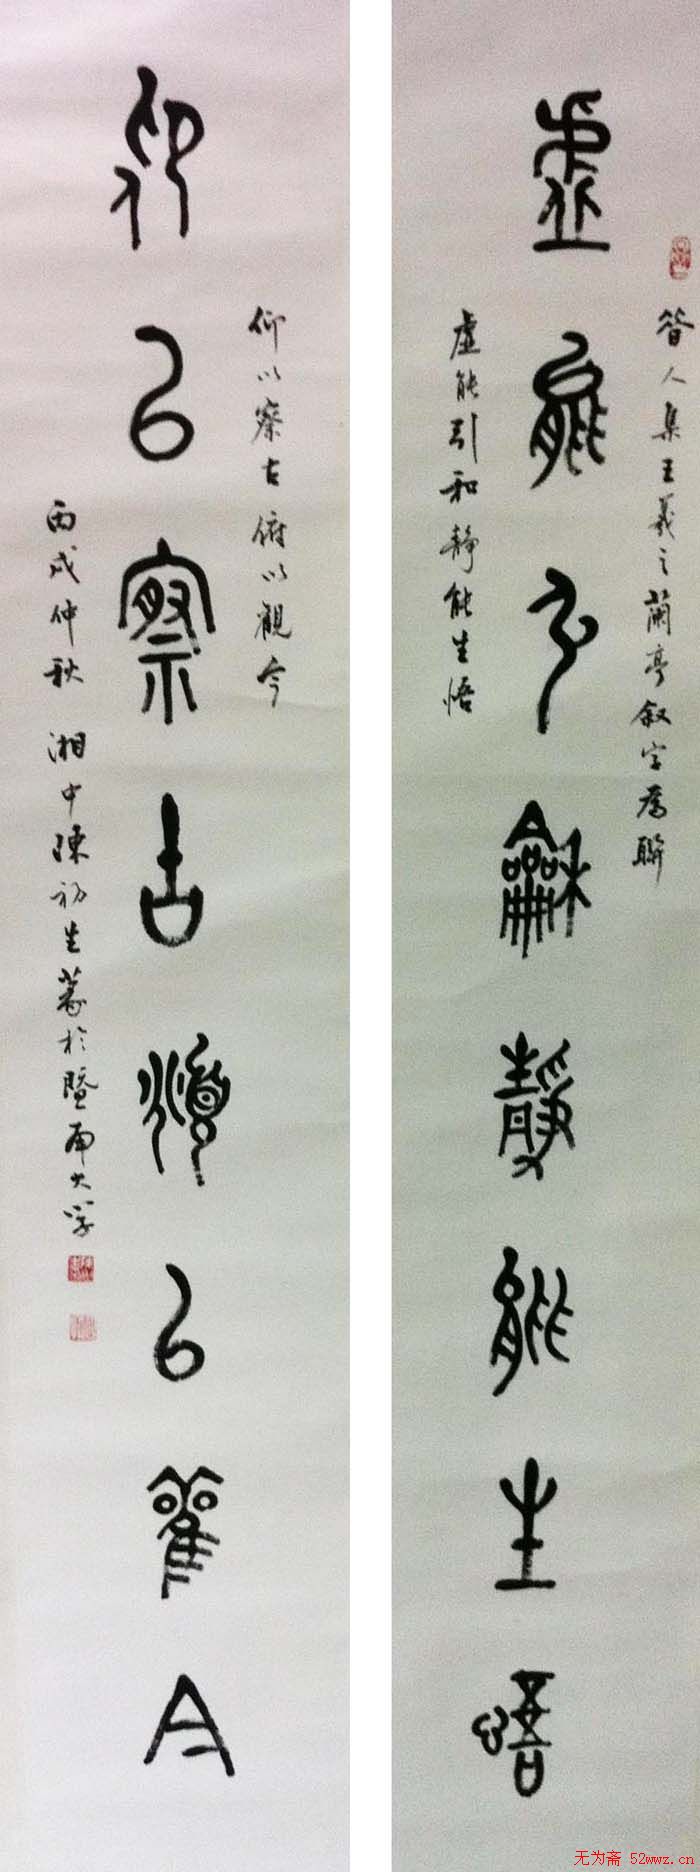 昔人集王羲之蘭亭叙字為聯
虛能引龢靜能生悟
虛能引和靜能生悟
仰以察古俯以觀今
仰以察古俯以觀今
丙戌仲秋 湘中陳初生篆於暨南大學
无为斋 52wwz.cn